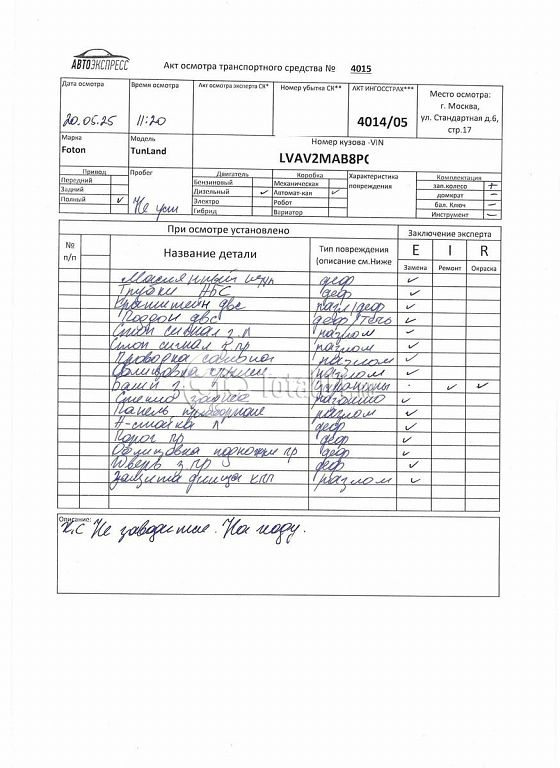 АВТОЭКСПРЕСС Акт осмотра транспортного средства № 4015
Дата осмотра Время осмотра Акт осмотра эксперта СК* Номер убытка СК** АКТ ИНГОССТРАХ*** Место осмотра:
г. Москва,
ул. Стандартная д.6,
стр.17
20.05.25 11:20 4014/05
Марка Модель Номер кузова -VIN
Foton TunLand LVAV2MAB8P
Привод Пробег Двигатель Коробка Характеристика повреждения Комплектация
Передний Бензиновый Механическая зап.колесо +
Задний Дизельный ✓ Автомат-кая ✓ домкрат –
Полный ✓ Электро Робот бал. Ключ –
Гибрид Вариатор Инструмент –
При осмотре установлено Заключение эксперта
№ п/п Название детали Тип повреждения (описание см.Ниже E I R
Замена Ремонт Окраска
Масляный деф ✓
Трубки деф ✓
Кронштейн двс разл/деф ✓
Поддон двс деф/течь ✓
Стоп сигнал з Л разлом ✓
Стоп сигнал з пр разлом ✓
Проводка разлом ✓
Облицовка разлом ✓
✓ ✓
Стекло заднее ✓
Панель приборная разлом ✓
А-стойка Л деф ✓
Порог пр деф ✓
Облицовка подножки пр деф ✓
Дверь з пр деф ✓
Защита днища КПП разлом ✓
Описание:
Не заводится. На ходу.